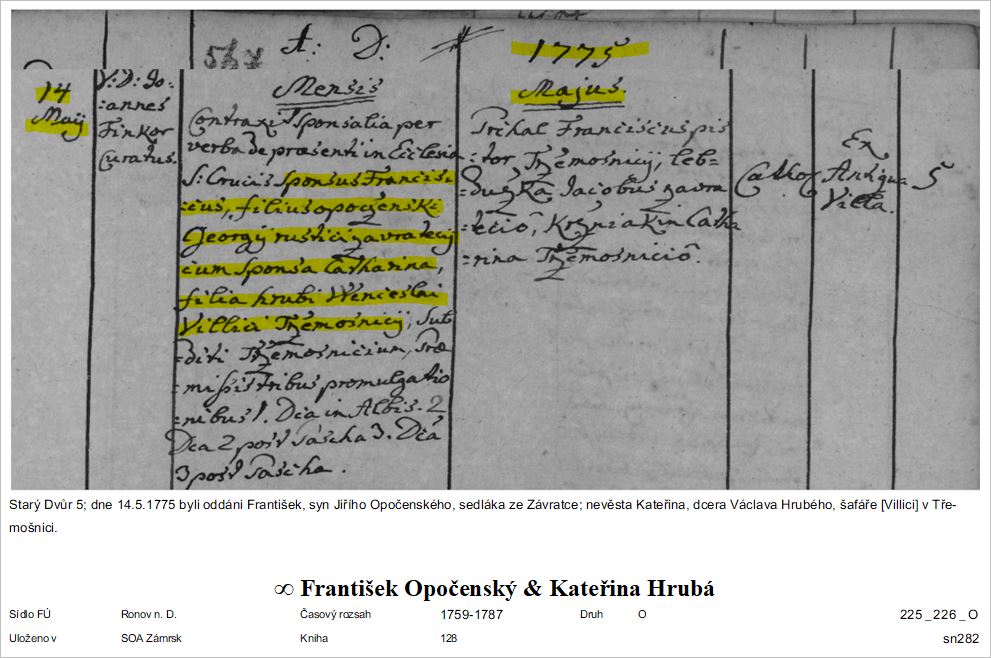 A: D: 1775
14
Maij
V: D: Jo:
:annes
Finkor
Curatus.
Mensis
Contraxit Sponsalia per
verba de praesenti in Ecclesia
S: Crucis Sponsus Francis:
:cus, filius opoczenski
Georgij rustici zavratecij
cum Sponsa Catharina,
filia hrubi Wenceslai
Villici Trzemosnicij, Sub
:diti Trzemosnicium, Prae
:missis tribus promulgatio
:nibus 1. Dca in Albis. 2
Dca 2 post Pascha 3. Dca
3 post Pascha.
Majus.
Prchal Franciscus pis
:tor Trzemosnicij, leb=
:duzka Jacobus zavra
:tecio, Krzniakin Catha
:rina Trzemosnicio.
Cathol
Ex
Antiqua
Villa.
5
Starý Dvůr 5; dne 14.5.1775 byli oddáni František, syn Jiřího Opočenského, sedláka ze Závratce; nevěsta Kateřina, dcera Václava Hrubého, šafáře [Villici] v Tře-
mošnici.
∞ František Opočenský & Kateřina Hrubá
Sídlo FÚ Ronov n. D. Časový rozsah 1759-1787 Druh O 225_226_O
Uloženo v SOA Zámrsk Kniha 128 sn282